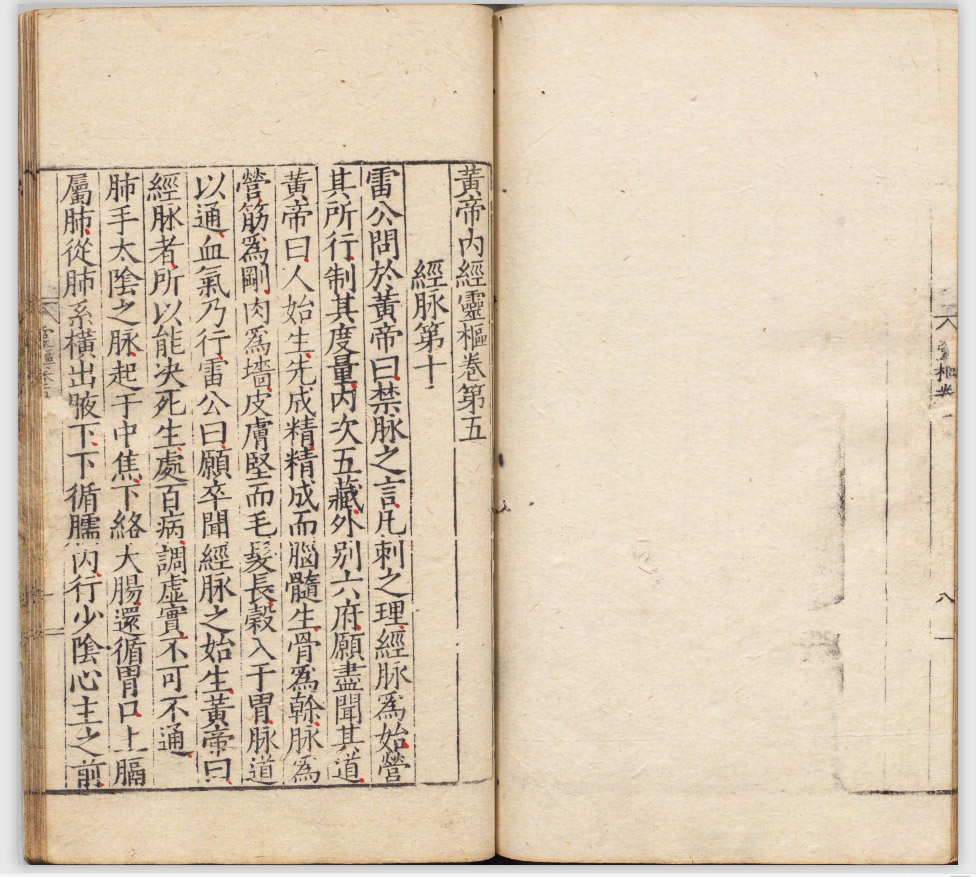 黃帝內經靈樞卷第五
經脉第十
雷公問於黃帝曰禁脉之言凡刺之理經脉爲始營
其所行制其度量內次五藏外別六府願盡聞其道
黃帝曰人始生先成精精成而腦髓生骨爲幹脉爲
營筋爲剛肉爲墻皮膚堅而毛髮長穀入于胃脉道
以通血氣乃行雷公曰願卒聞經脉之始生黃帝曰
經脉者所以能决死生處百病調虛實不可不通
肺手太陰之脉起于中焦下絡大腸還循胃口上膈
屬肺從肺系橫出腋下下循臑內行少陰心主之前
八